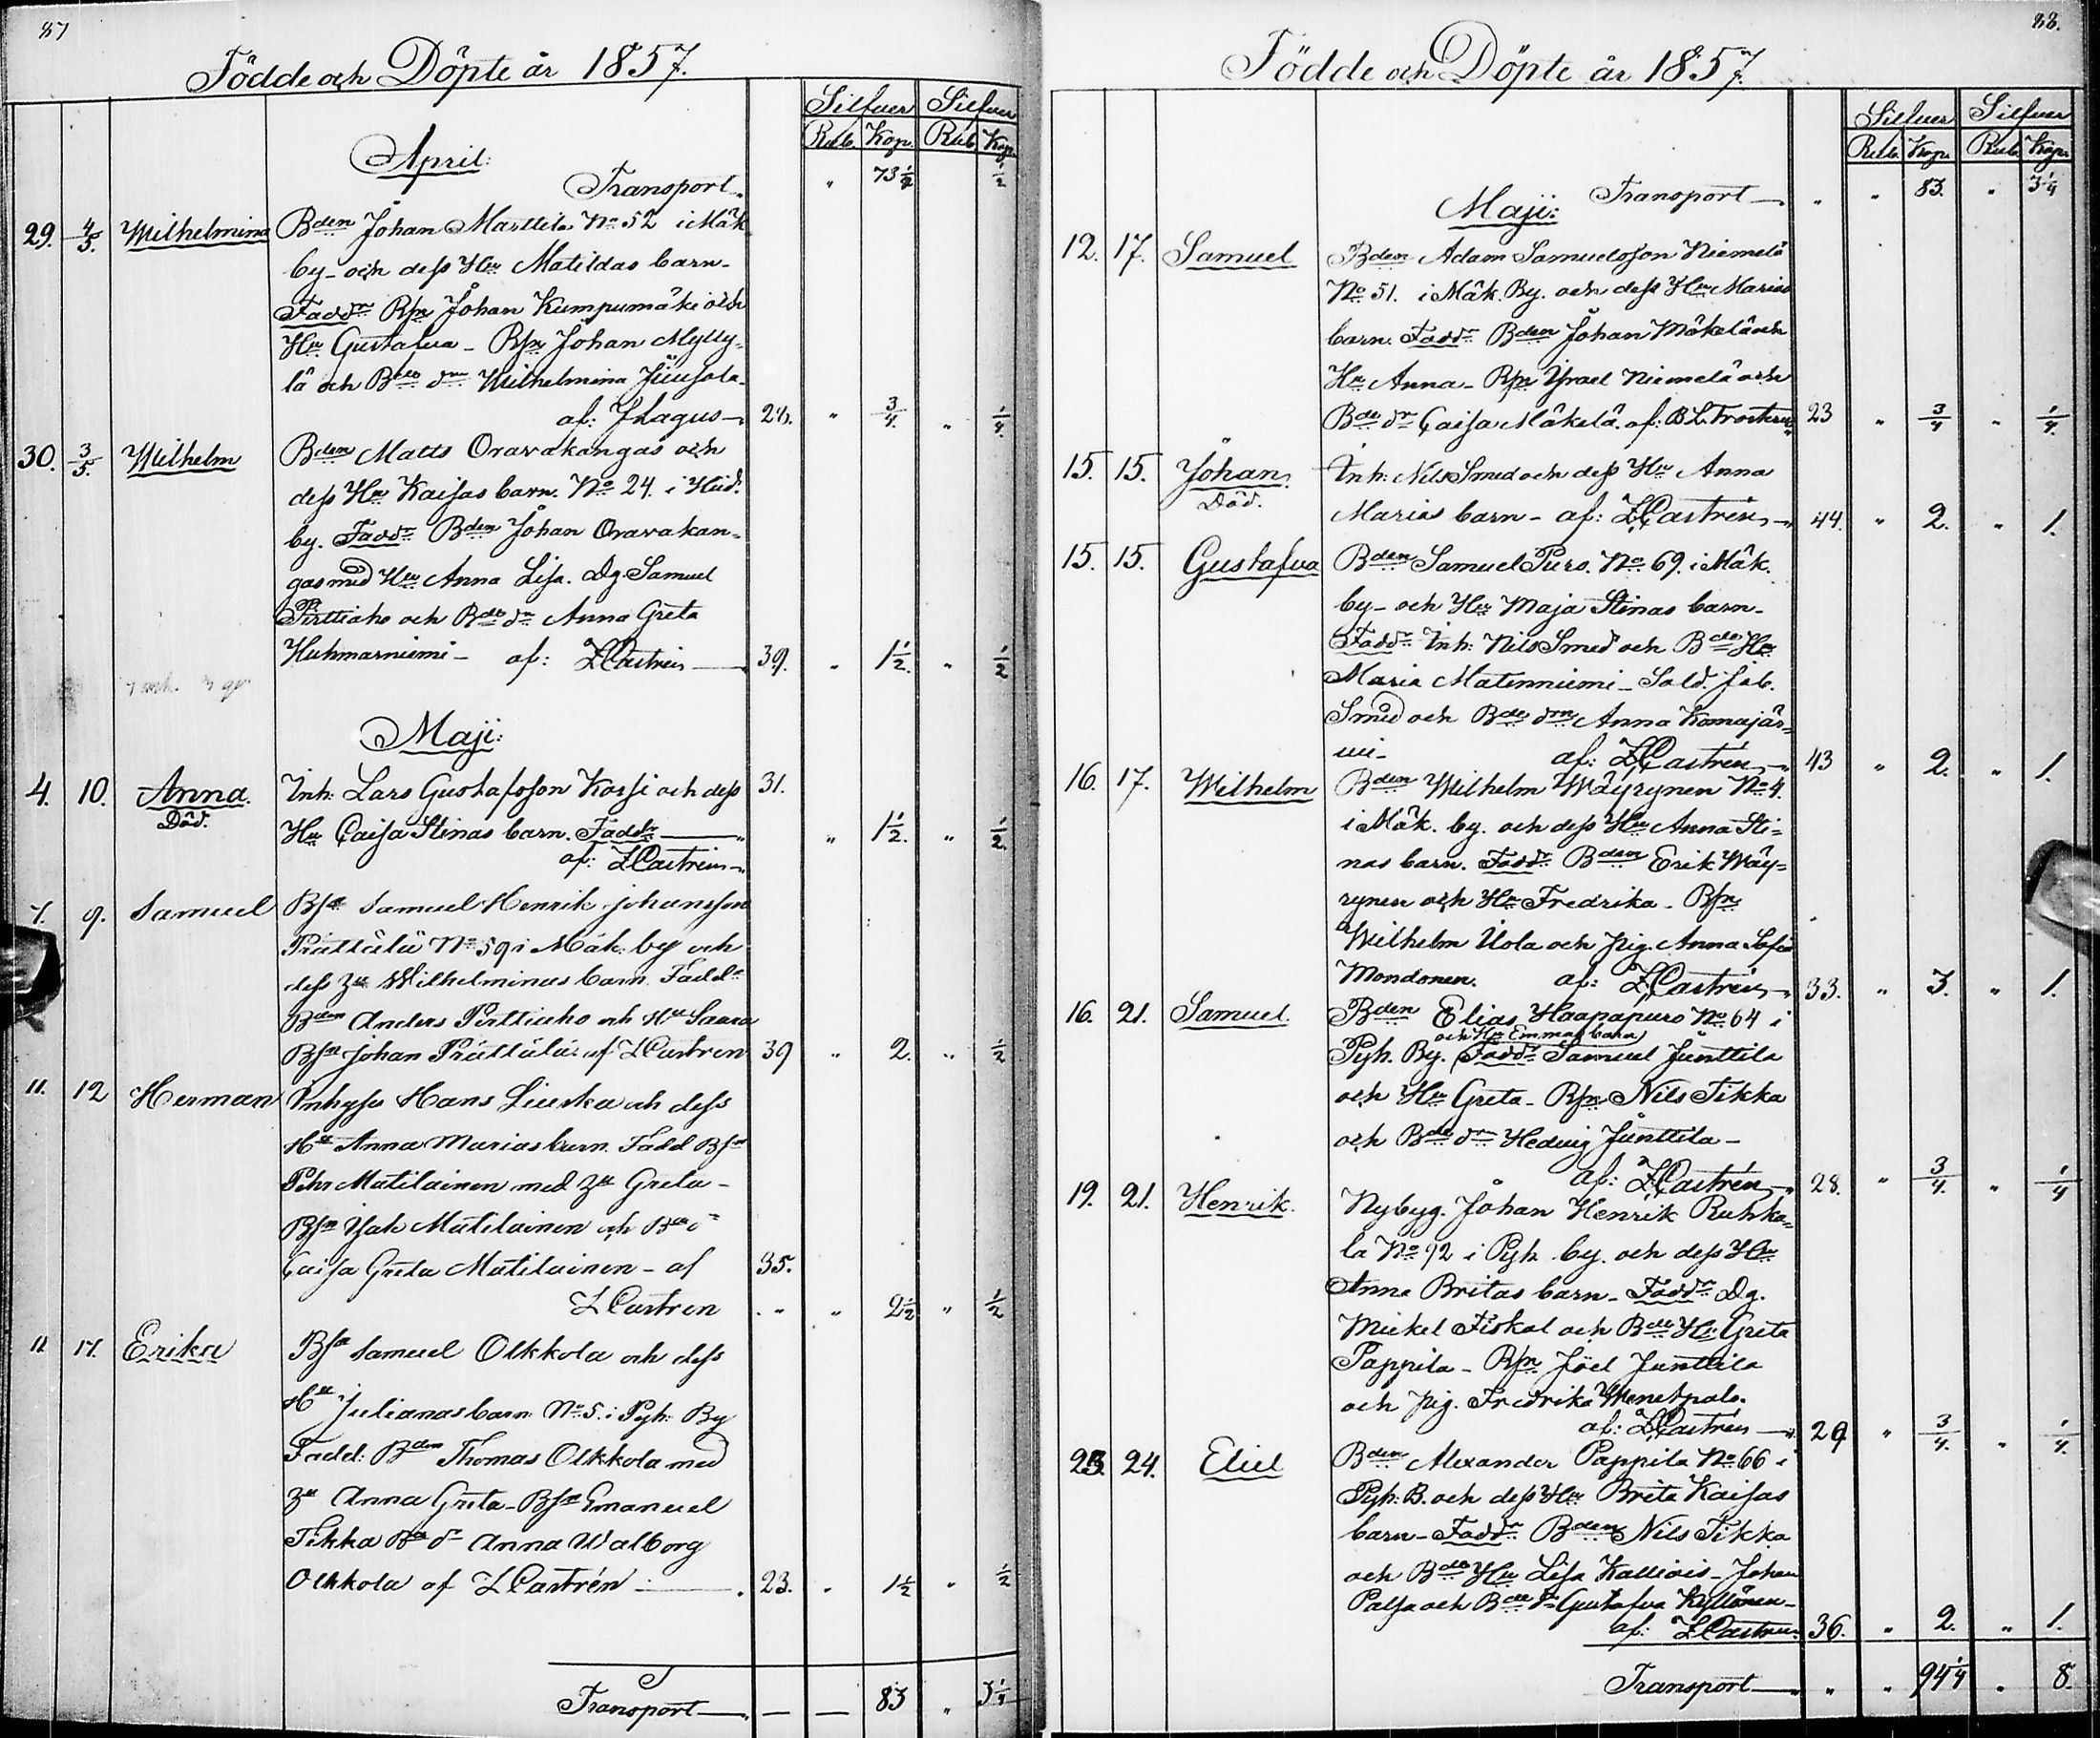 87
Födde och Döpte år 1857.
Silfver Silfver
Rub. Kop. Rub. Kop.
April:
Transport „ 73 1/2 1/2
29. 4/5. Wilhelmina Bden Johan Marttila No 52 i Mäk
by och dess Hu Matildas barn
Faddr Bsn Johan Kumpumäki och
Hu Gustafva - Bsn Johan Mylly-
lä och Bde dr Wilhelmina Junsola
af: J Lagus 28. „ 3/4. „ 1/4.
30. 3/5. Wilhelm Bden Matts Oravakangas och
dess Hu Kaisas barn. No 24. i Hid.
by. Faddr Bden Johan Oravakan-
gas med Hu Anna Lisa. Dg. Samuel
Pirttiaho och Bde dr Anna Greta
Huhmarniemi - af: Z Castrén 39. „ 1 1/2. „ 1/2
Maji:
4. 10. Anna. Inh: Lars Gustafsson Korsi och dess 31.
Död. Hu Caisa Stinas barn. Faddr „ 1 1/2. „ 1/2.
af: Z Castrén
7. 9. Samuel Bsn Samuel Henrik Johansson
Prättälä No 59 i Mäk. by och
dess Hu Wilhelminas barn Faddr
Bden Anders Pirttiaho och Hu Saara
Bsn Johan Prättälä af Z Castren 39 „ 2. „ 1/2
11. 12 Herman Inhyses Hans Lieska och dess
Hu Anna Marias barn. Fadd Bsn
Pehr Matilainen med Hu Greta -
Bsn Isak Matilainen och Bde dr
Caisa Greta Matilainen - af 35.
Z Castren „ „ 2 1/2 „ 1/2
11 17. Erika Bsn Samuel Olkkola och dess
Hu Julianas barn No 5. i Pyh: By
Fadd: Bden Thomas Olkkola med
Hu Anna Greta - Bsn Emanuel
Tikka Bde dr Anna Walborg
Olkkola af Z Castrén 23. „ 1 1/2 „ 1/2
Transport — — 83 „ 3 1/4
88.
Födde och Döpte år 1857.
Silfver Silfver
Rub. Kop. Rub. Kop.
Transport „ „ 83. „ 3 1/4
Maji:
12. 17. Samuel Bden Adam Samuelsson Niemelä
No 51. i Mäk. By. och dess Hu Marias
barn. Faddr Bden Johan Mäkelä och
Hu Anna - Bsn Israel Niemelä och
Bde dr Caisa Mäkelä. af: B L Frosterus 23 „ 3/4 „ 1/4.
15. 15. Johan. Inh: Nils Smed och dess Hu Anna
Död. Marias barn - af: Z Castrén 44. „ 2. „ 1.
15. 15. Gustafva Bden Samuel Puro. No 69. i Mäk.
by - och Hu Maja Stinas barn -
Faddr Inh: Nils Smed och Bde Hu
Maria Matenniemi - Sold. Jak.
Smed och Bde dr Anna Komajär-
vi - af: Z Castrén 43 „ 2. „ 1.
16. 17. Wilhelm Bden Wilhelm Wäyrynen No 4.
i Mäk. by. och dess Hu Anna Sti-
nas barn. Faddr Bden Erik Wäy-
rynen och Hu Fredrika - Bsn
Wilhelm Uola och pig. Anna Sofia
Mondonen. af: Z Castrén 33. „ 3. „ 1.
16. 21. Samuel. Bden Elias Haapapuro No 64 i
och Hu Emmas barn
Pyh. By. Faddr Samuel Junttila
och Hu Greta - Bsn Nils Tikka
och Bde dr Hedvig Junttila -
af: Z Castrén 28. „ 3/4. „ 1/4
19. 21. Henrik. Nybyg. Johan Henrik Ruhka-
la No 92 i Pyh by. och dess Hu
Anna Britas barn - Faddr Dg.
Mickel Fiskal och Bde Hu Greta
Pappila - Bsn Joel Junttila
och pig. Fredrika Wenetpalo.
af: Z Castrén 29 „ 3/4. „ 1/4.
23. 24. Eliel Bden Alexander Pappila No 66 i
Pyh: B. och dess Hu Brita Kaisas
barn - Faddr Bden Nils Tikka
och Bde Hu Lisa Kallio - Johan
Palsa och Bde dr Gustafva Kyllönen -
af: Z Castren. 36. „ 2. „ 1.
Transport „ „ 94 1/4 „ 8